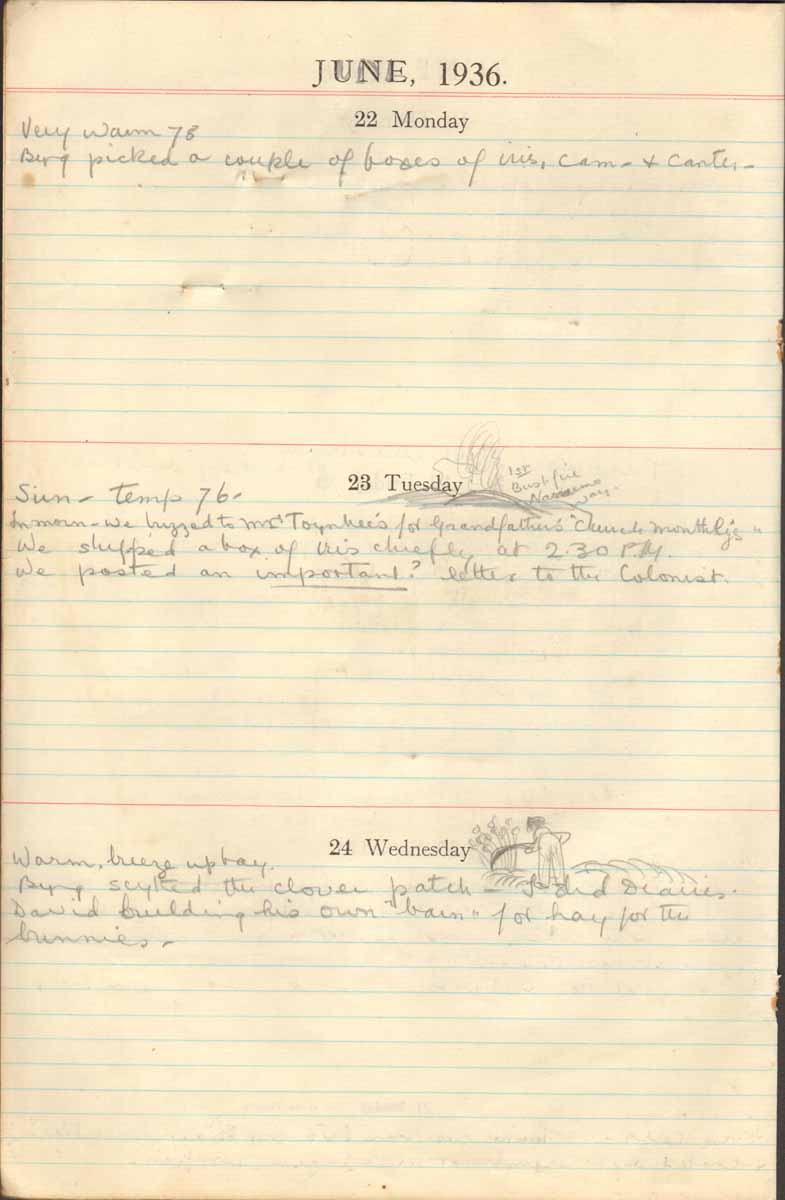 JUNE, 1936.
22 Monday
Very warm 78
Byng picked a couple of boxes of iris, cam- & canter-
23 Tuesday
1st
Bushfire
Nanaimo
way-
Sun - temp 76-
In morn - we buzzed to Mrs Toynbee's for Grandfather's "Church Monthly's"
We shipped a box of iris chiefly at 2.30 P.M.
We posted an important? letter to the Colonist.
24 Wednesday
Warm, breeze up bay.
Byng scythed the clover patch - I did Diaries.
David building his own "barn" for hay for the
bunnies-